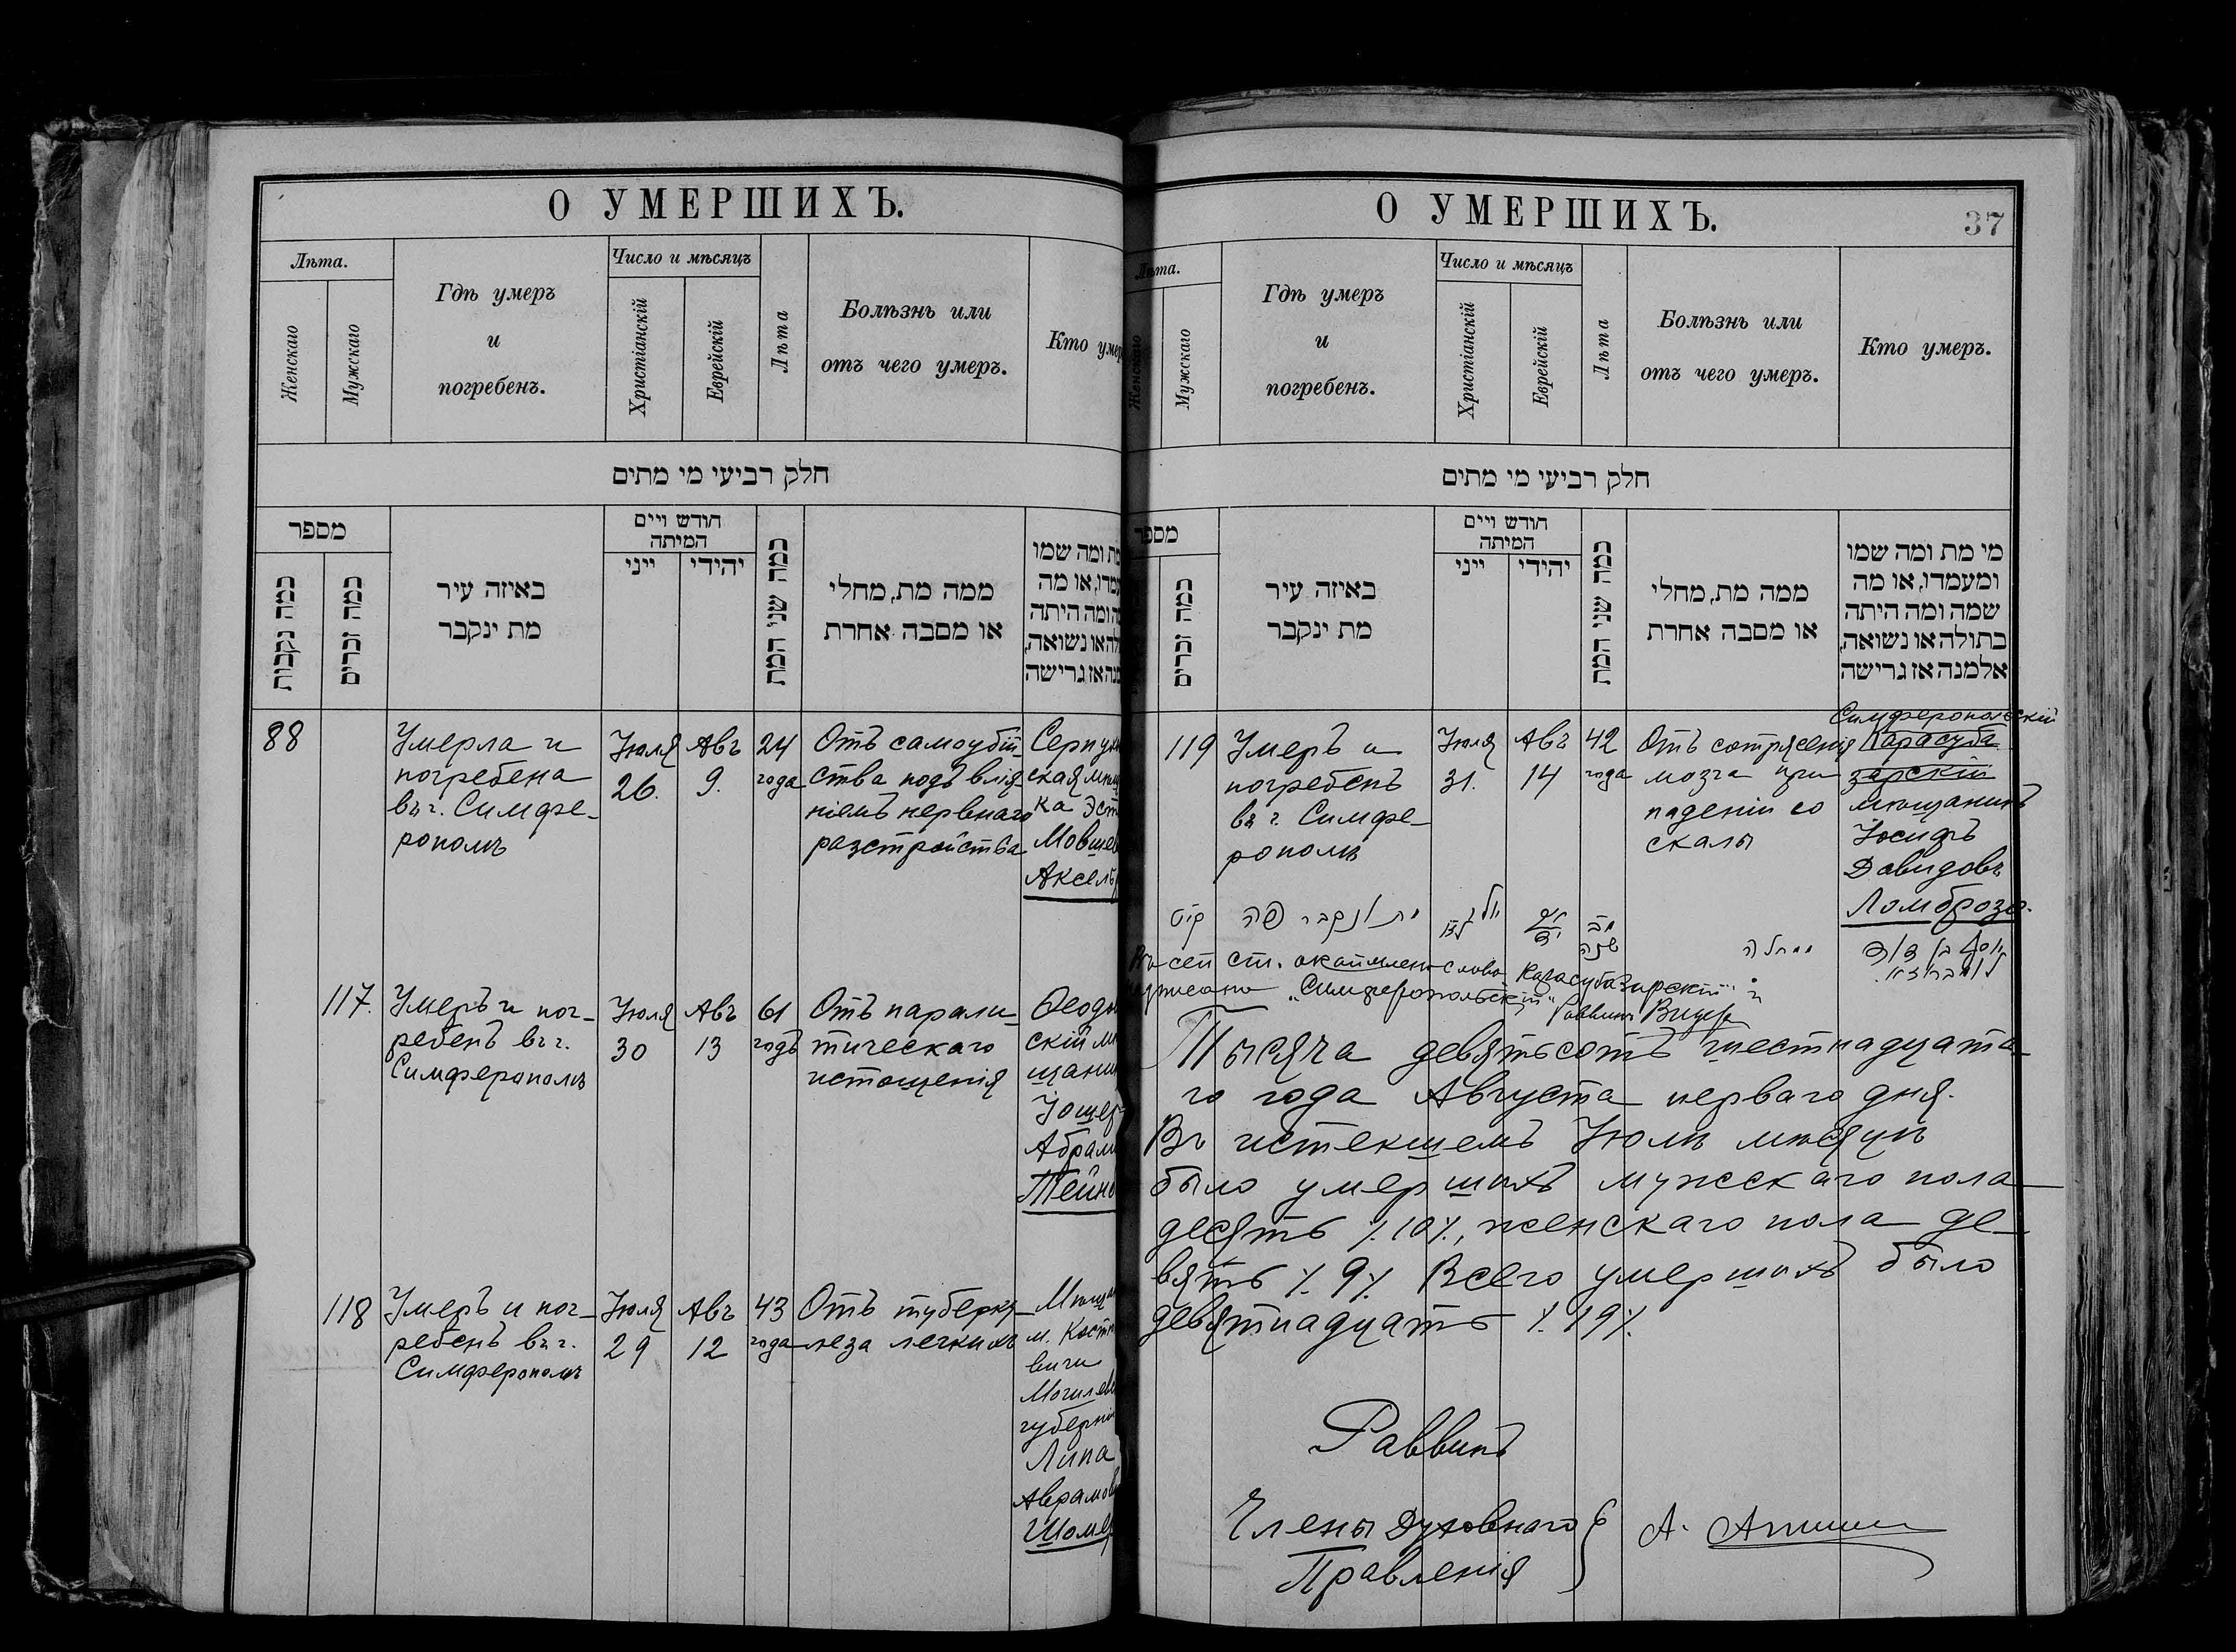 О УМЕРШИХЪ.
Лѣта.
Женскаго
Мужскаго
Гдѣ умеръ
и
погребенъ.
Число и мѣсяцъ
Христіанскій
Еврейскій
Лѣта
Болѣзнь или
отъ чего умеръ.
Кто умер
חלק רביעי מי מתים
מספר
כמה נקבות
כמה זכרים
באיזה עיר
מת ינקבר
חודש ויים
המיתה
ייני
יהידי
כמה שני המת
ממה מת, מחלי
או מסבה אחרת
מת ומה שמו
או מה
ומה היתה
או נשואה,
אז גרישה
88
Умерла и
погребена
въ г. Симфе-
рополѣ
Іюля
26.
Авъ
9.
24
года
Отъ самоубій
ства подъ влія-
ніемъ нервнаго
разстройства
Серпух
ская мѣщ
ка Эст
Мовшев
Аксель
117.
Умеръ и пог-
ребенъ въ г.
Симферополѣ
Іюля
30
Авъ
13
61
годъ
Отъ парали-
тическаго
истощенія
Ѳеодо
скій мѣ
щани
Іошер
Абрам
Тейн
118
Умеръ и пог-
ребенъ въ г.
Симферополѣ
Іюля
29
Авъ
12
43
года
Отъ туберку-
леза легкихъ
Мѣща
м. Костю
вичи
Могилев
губерніи
Липа
Аврамов
Шомер
О УМЕРШИХЪ.
37
Лѣта.
Женскаго
Мужскаго
Гдѣ умеръ
и
погребенъ.
Число и мѣсяцъ
Христіанскій
Еврейскій
Лѣта
Болѣзнь или
отъ чего умеръ.
Кто умеръ.
חלק רביעי מי מתים
מספר
כמה זכרים
באיזה עיר
מת ינקבר
חודש ויים
המיתה
ייני
יהידי
כמה שני המת
ממה מת, מחלי
או מסבה אחרת
מי מת ומה שמו
ומעמדו, או מה
שמה ומה היתה
בתולה או נשואה,
אלמנה אז גרישה
119
Умеръ и
погребенъ
въ г. Симфе-
рополѣ
Іюля
31.
Авъ
14
42
года
Отъ сотрясенія
мозга при
паденіи со
скалы
Симферопольскій
Карасуба
зарскій
мѣщанинъ
Іосифъ
Давидовъ
Ломброзо.
קיט
מת ונקבר פה
מב
שנה
ממחלה
יוסף בן דוד
לומברוזו.
Въ сей ст. окаймлено слово Карасубазарскій" и
написано „Симферопольскій"
Раввинъ
Тысяча девятьсотъ шестнадцата-
го года Августа перваго дня.
Въ истекшемъ Іюлѣ мѣсяцѣ
было умершихъ мужскаго пола
десять %10%, женскаго пола де-
вять %9% Всего умершихъ было
девятнадцать %19%
Раввинъ
Члены Духовнаго
Правленія
А.